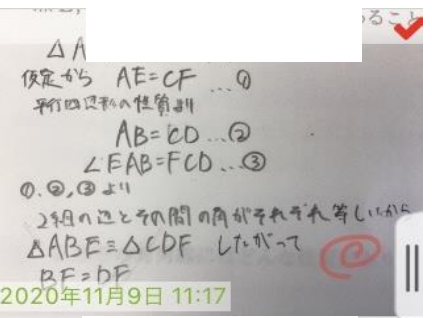 ること
△A
仮定から AE=CF …①
平行四辺形の性質より
AB=CD…②
∠EAB=FCD…③
①.②,③より
2組の辺とその間の角がそれぞれ等しいから
△ABE≡△CDF したがって
BF=DF
2020年11月9日 11:17